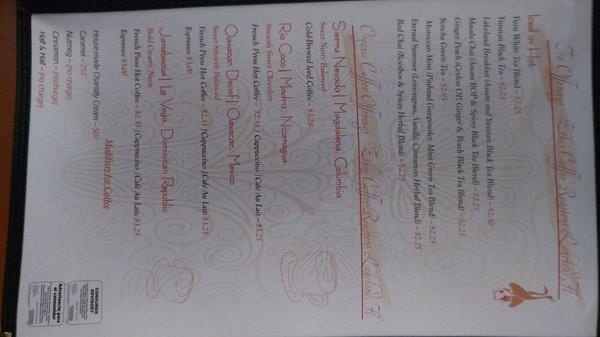 Tea Offerings - Ethos Coffee Roasters Lakeland, Fl
Iced or Hot
Yunnan White Tea Blend - $2.25
Yunnan Black Tea - $2.25
Lakeland Breakfast (Assam and Yunnan Black Tea Blend) - $2.50
Masala Chai (Assam BOP & Spices Black Tea Blend) - $2.75
Ginger Peach (Ceylon OP, Ginger & Peach Black Tea Blend) - $2.25
Sencha Green Tea - $2.95
Moroccan Mint (Pinhead Gunpowder, Mint Green Tea Blend) - $2.25
Eternal Summer (Lemongrass, Vanilla, Cinnamon Herbal Blend) - $2.25
Red Chai (Rooibos & Spices Herbal Blend) - $2.75
Organic Coffee Offerings - Ethos Coffee Roasters Lakeland, Fl
Sierra Nevada | Magdalena, Columbia
Sweet Nutty Balanced
Cold Brewed Iced Coffee - $3.25
Ro Coco | Madriz, Nicaragua
Smooth Sweet Chocolaty
French Press Hot Coffee - $2.35 | Cappuccino | Cafe Au Lait - $3.25
Oaxacan Decaf | Oaxacan, Mexico
Sweet Smooth Balanced
French Press Hot Coffee - $2.35 | Cappuccino | Cafe Au Lait $3.25
Espresso $3.00
Jarabacoa | La Vega, Dominican Republic
Bold Creamy Nutty
French Press Hot Coffee - $2.35 | Cappuccino | Cafe Au Lait $3.25
Espresso $3.00
Modifiers for Coffee
House-made Chantilly Cream - 50¢
Caramel - 25¢
Nutmeg - (no charge)
Cinnamon - (no charge)
Half & Half - (no charge)
CONSUMER
ADVISORY
Advertencia para
el consumidor